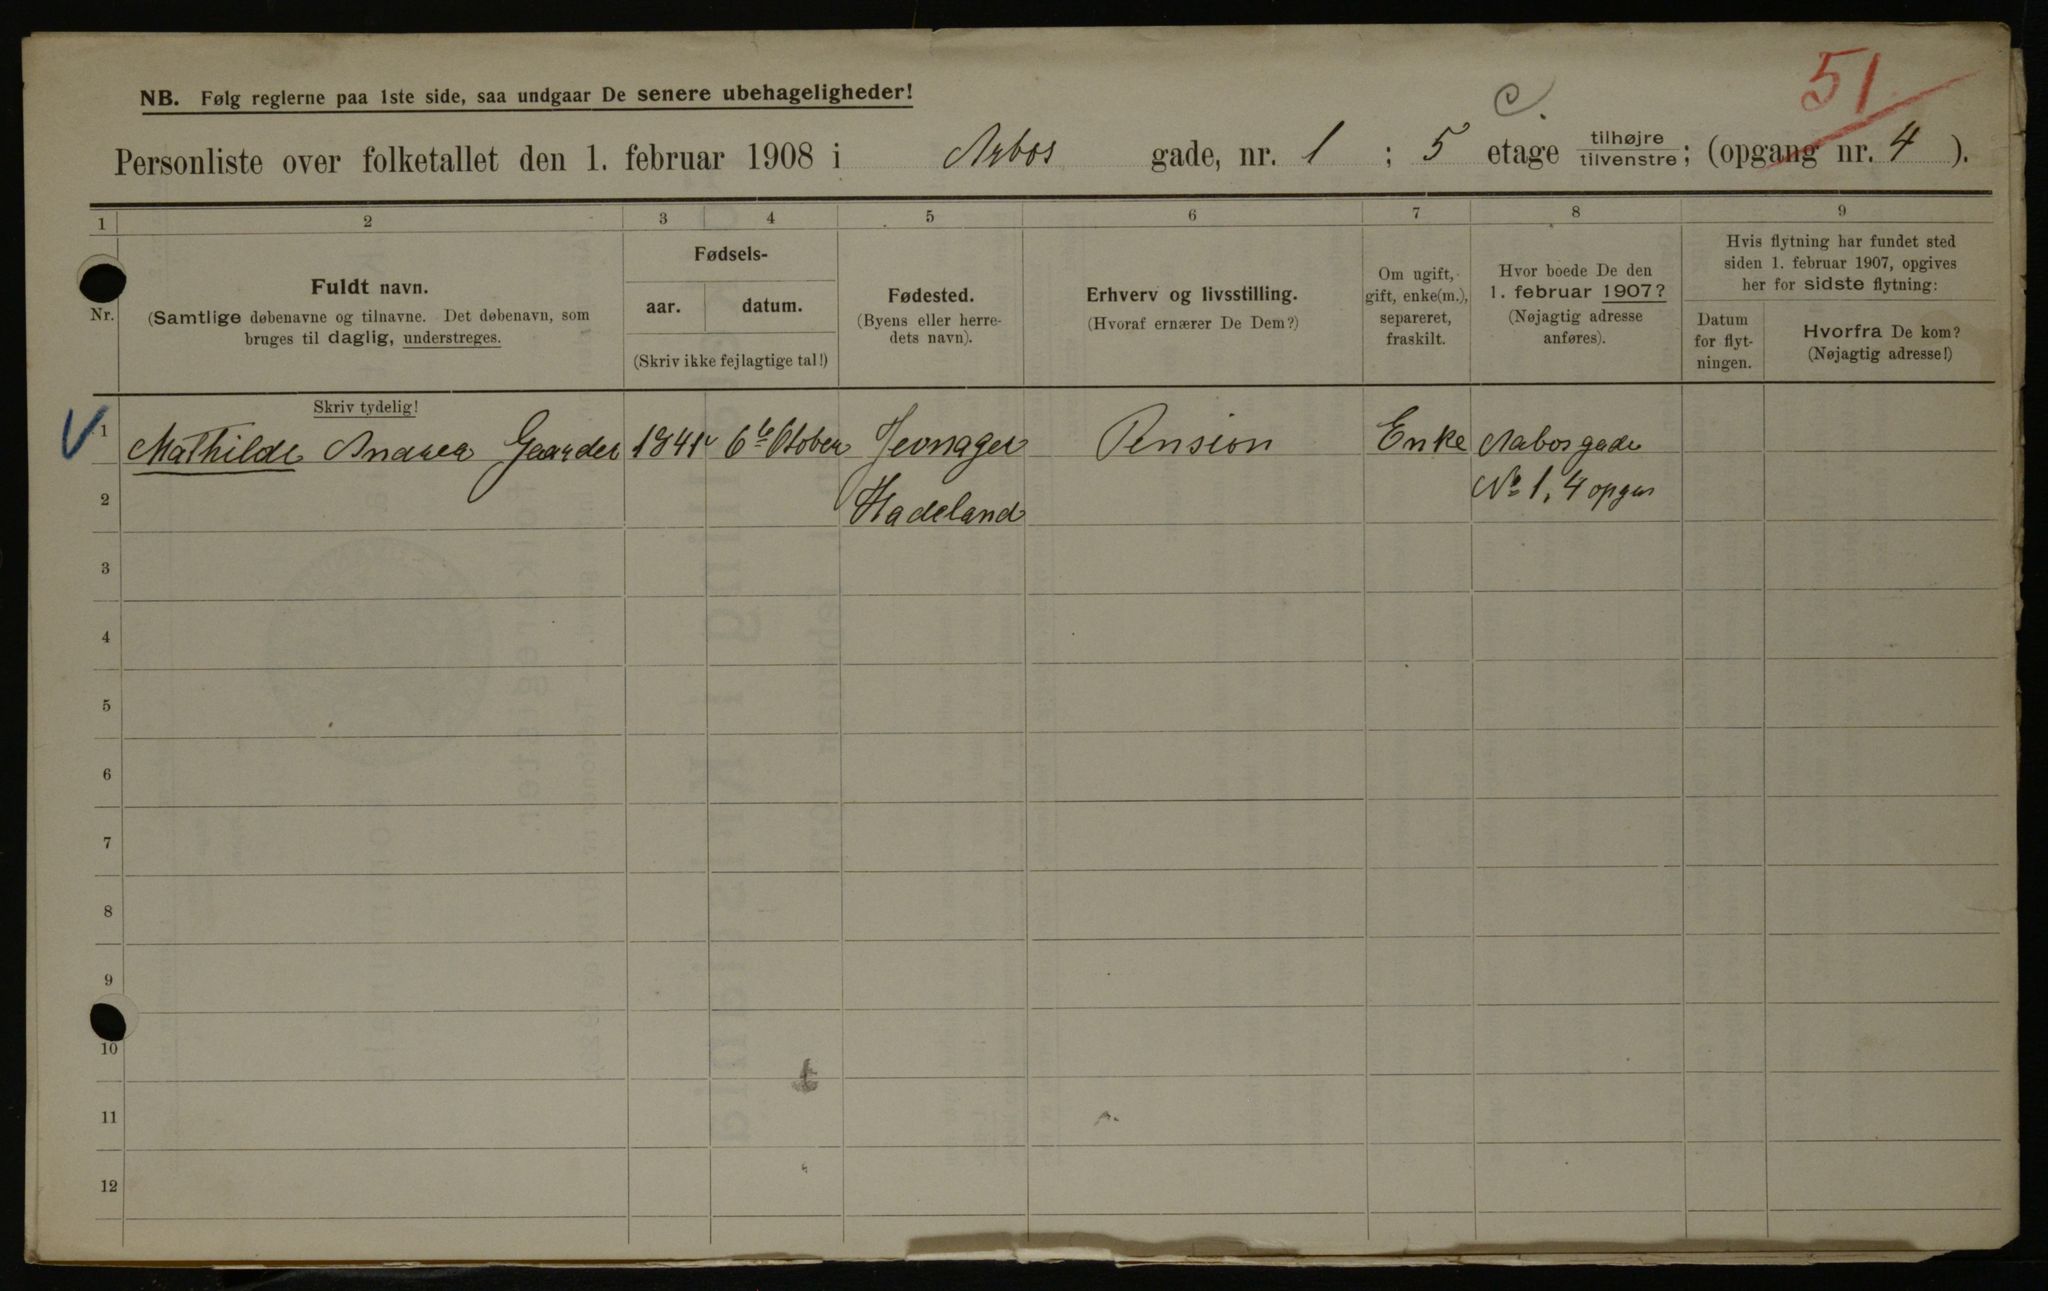 51
c.
NB. Følg reglerne paa 1ste side, saa undgaar De senere ubehageligheder!
Personliste over folketallet den 1. februar 1908 i Arbos gade, nr. 1 ; 5 etage tilhøjre tilvenstre; (opgang nr. 4 ).
1 2 3 4 5 6 7 8 9
Nr.
Fuldt navn.
(Samtlige døbenavne og tilnavne. Det døbenavn, som
bruges til daglig, understreges.
Skriv tydelig!
Fødsels-
aar. datum.
(Skriv ikke fejlagtige tal!)
Fødested.
(Byens eller herre-
dets navn).
Erhverv og livsstilling.
(Hvoraf ernærer De Dem?)
Om ugift,
gift, enke(m.),
separeret,
fraskilt.
Hvor boede De den
1. februar 1907?
(Nøjagtig adresse
anføres).
Hvis flytning har fundet sted
siden 1. februar 1907, opgives
her for sidste flytning:
Datum
for flyt-
ningen.
Hvorfra De kom?
(Nøjagtig adresse!)
1 Mathilde Andrea Gaarder 1841 6te Otober Jevnager Pension Enke Aabosgade
2 Hadeland No 1, 4 opgan
3
4
5
6
7
8
9
10
11
12